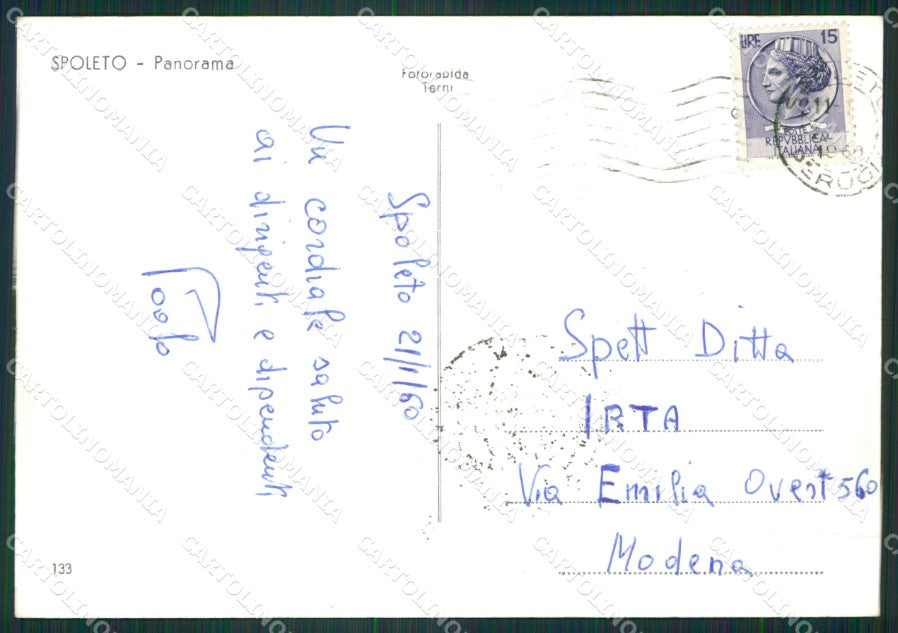 SPOLETO - Panorama
Fotorapida
Terni
LIRE 15
POSTE
REPVBBLICA
ITALIANA
Spoleto 21/1/60
Un cordiale saluto
ai dirigenti e dipendenti
Paolo
Spett Ditta
IRTA
Via Emilia Ovest 560
Modena
133
CARTOLINOMANIA